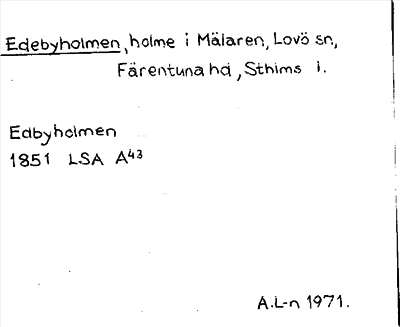 Edebyholmen, holme i Mälaren, Lovö sn,
Färentuna hd, Sthlms l.
Edbyholmen
1851 LSA A43
A.L-n 1971.